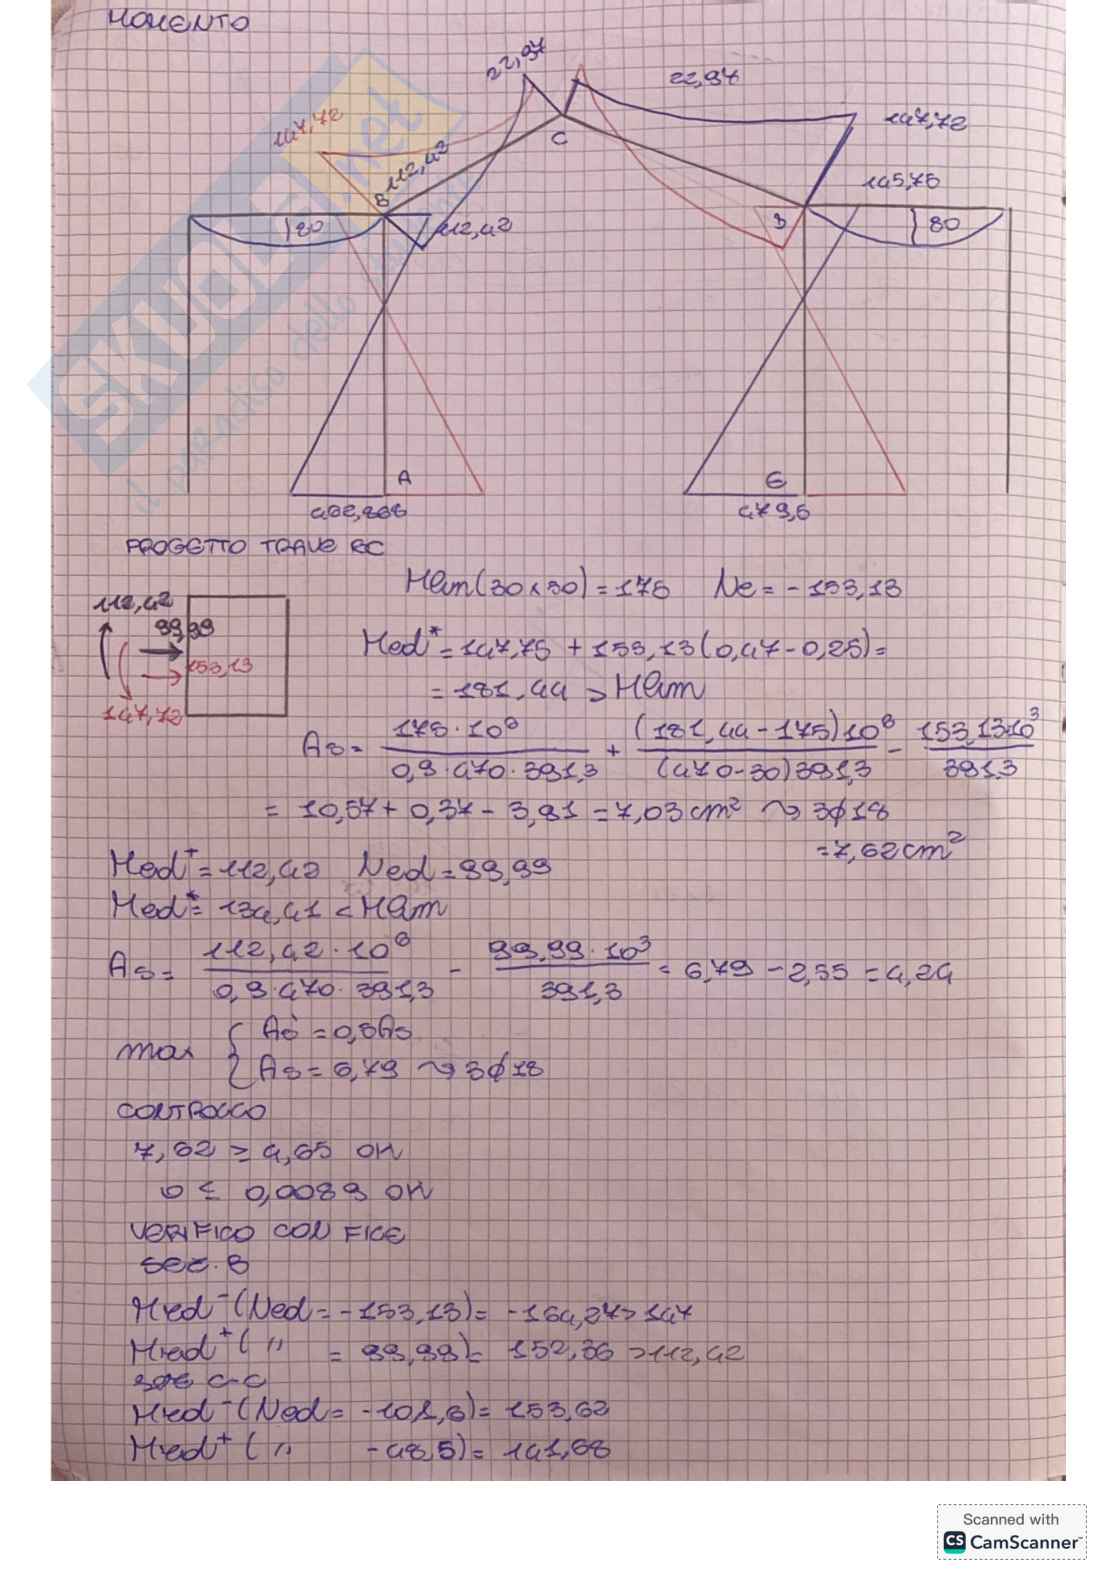 MOMENTO
22,97
22,97
147,72
147,72
112,42
C
145,76
B
80
112,42
B
80
A
E
462,868
479,6
PROGETTO TRAVE BC
Mlim (30x50) = 175 Ne = -153,13
112,42
99,99
153,13
147,72
Med* = 147,75 + 153,13 (0,47-0,25) =
= 181,44 > Mlim
As = 175·10⁶ / 0,9·470·391,3 + (181,44-175)10⁶ / (470-30)391,3 - 153,13·10³ / 391,3
= 10,57 + 0,37 - 3,91 = 7,03 cm² ↝ 3ϕ18
= 7,62 cm²
Med⁺ = 112,42 Ned = 99,99
Med* = 134,41 < Mlim
As = 112,42·10⁶ / 0,9·470·391,3 - 99,99·10³ / 391,3 = 6,79 - 2,55 = 4,24
max { As' = 0,5As
As = 6,79 ↝ 3ϕ18
CONTROLLO
7,62 ≥ 4,65 OK
0 ≤ 0,0089 OK
VERIFICO CON FICE
sez. B
Mrd⁻ (Ned = -153,13) = -164,27 > 147
Mrd⁺ ( " = 99,99) = 152,36 > 112,42
sez C-C
Mrd⁻ (Ned = -101,6) = 153,62
Mrd⁺ ( " -48,5) = 141,68
SKUOLA.net
il paradiso dello
Scanned with
CS CamScanner